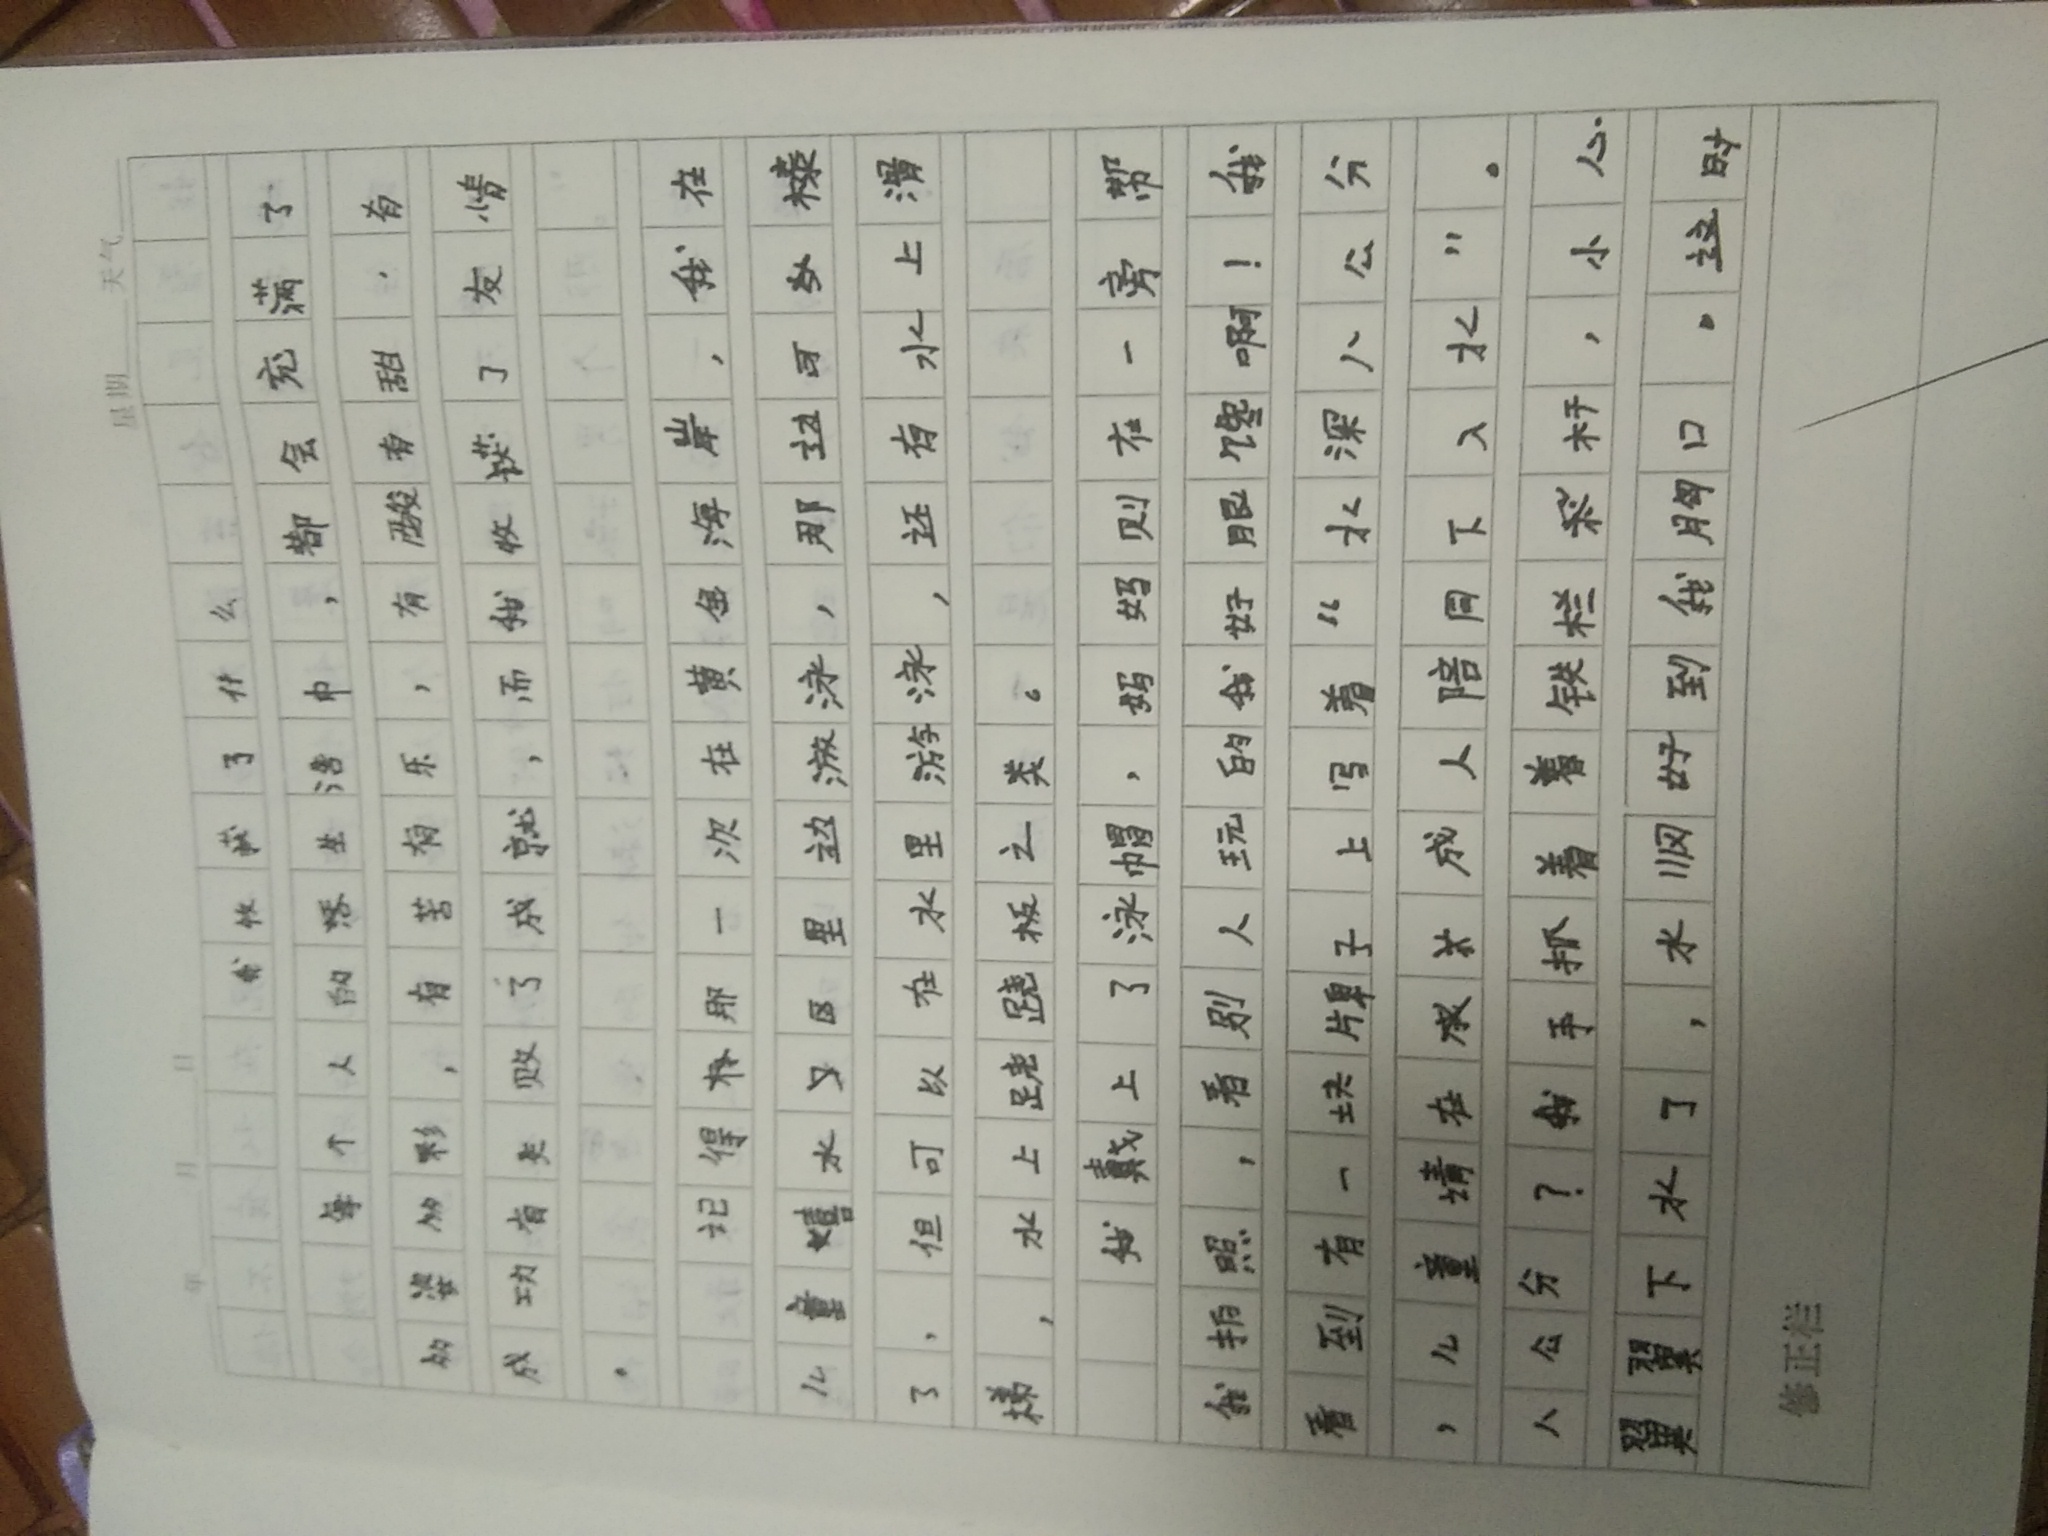 年 月 日 星期 天气
我收获了什么
每个人的生活巾，都会充满了
多姿多彩，有苦有乐，有酸有甜，有
成功有失败了成就，而我收获了友情
。
记得有那一次在黄金海岸，我在
儿童嬉水区里边游泳，那边可好棒
了，但可以在水里游泳，还有水上滑
梯，水上跷跷板之类。
我戴上了泳帽，妈妈则在一旁帮
我拍照，看别人玩的我好眼馋啊！我
看到有一块牌子上写着“水深八公分
，儿童请在成人陪同下入水”。
八公分？我手抓着着铁栏杆，小心
翼翼下水了，水刚好到我胸口。这时
修正栏